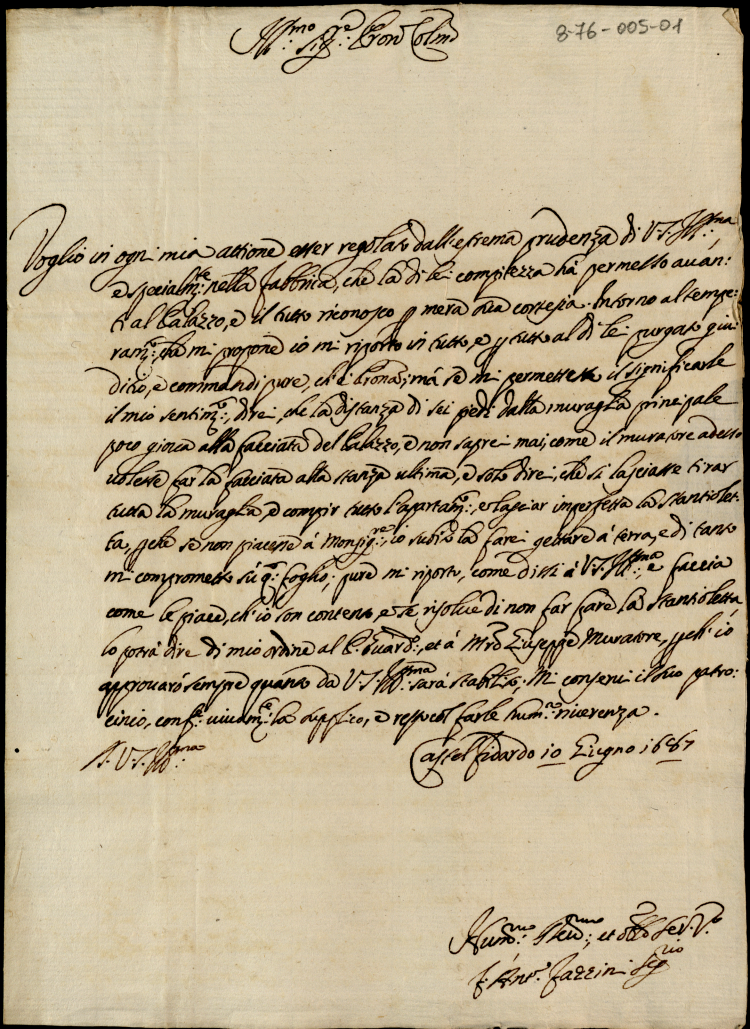 8-76-005-01
Ill:mo Sig:re Pron Col:mo
Voglio in ogni mia attione esser regolato dall'estrema prudenza di V.S. Ill:ma,
e specialm:te nella fabbrica, che la di lei compitezza há permesso auan:
ti al Palazzo, e il tutto riconosco p mera sua cortesia. Intorno al tempe:
ram:to che mi propone io mi riporto in tutto, e p tutto al di lei purgato giu:
dicio, e commandi pure, ch'è Prone; má se mi permettesse il significarle
il mio sentim:to, direi, che la distanza di sei piedi dalla muraglia principale
poco gioua alla facciata del Palazzo, e non saprei mai, come il muratore adesso
uolesse far la facciata alla stanza ultima, e solo direi, che si lasciasse tirar
tutta la muraglia, e compir tutto l'apartam:to, e lasciar imperfetta la stantiolet:
ta, pche se non piacesse á Monsig:re, io subito la farei gettare á terra, e di tanto
mi comprometto sú q:o foglio; pure mi riporto, come dissi á V.S. Ill:ma e faccia
come le piace, ch'io son contento, e se risolue di non far fare la stantioletta,
lo potrá dire di mio ordine al P. Guard:o, et á Mro Giuseppe Muratore, pch'io
approuaró sempre quanto da V.S. Ill:ma sará stabilito; Mi conserui il suo patro:
cinio, conf:e uiuam:te la supplico, e resto col farle hum:mo riuerenza.
D. V.S. Ill:ma
Castel fidardo 10 Giugno 1687
Hum:mo Deu:mo, et obb Ser:re V:o
f. Ant:o Fazzini Seg:rio